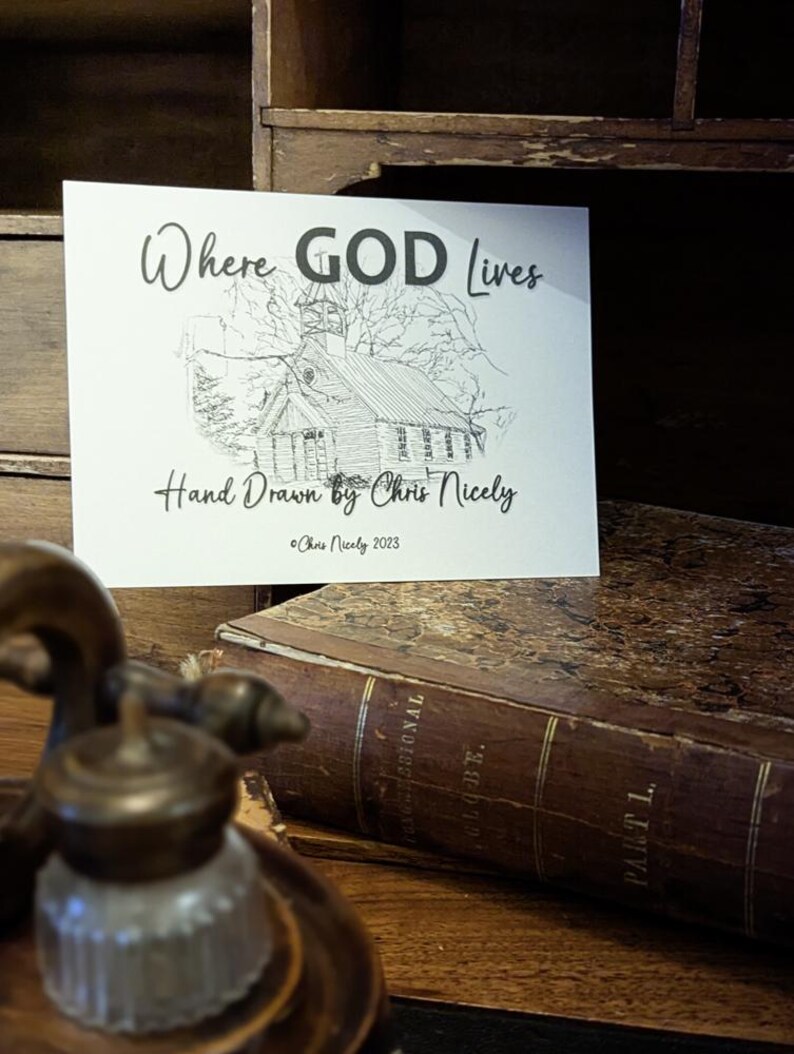 Where GOD Lives
Hand Drawn by Chris Nicely
©Chris Nicely 2023
GLOBE.
PART I.